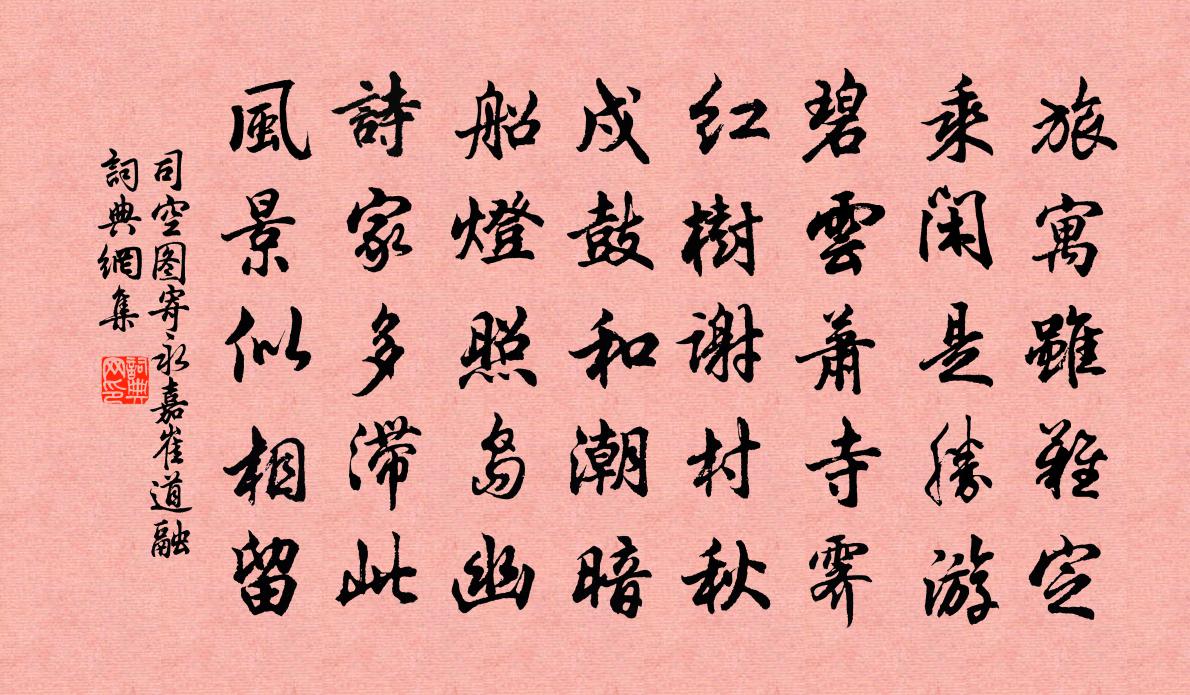 旅寓雖難定
乘閑是勝游
碧雲蕭寺霽
紅樹謝村秋
戍鼓和潮暗
船燈照島幽
詩家多滯此
風景似相留
司空图寄永嘉崔道融
詞典網集
詞典网印